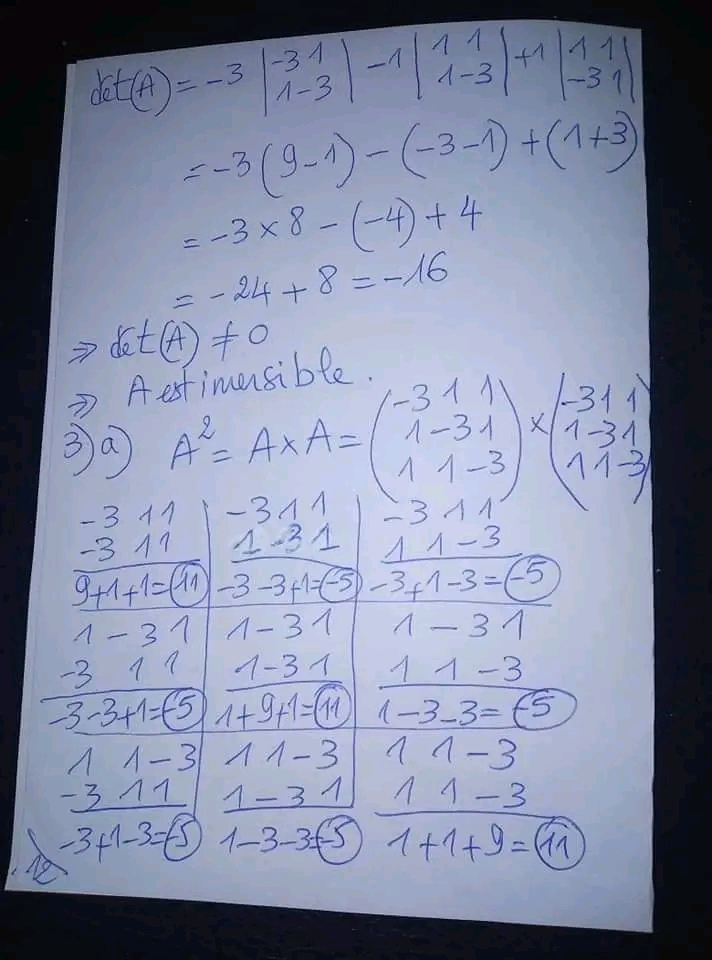 det(A) = -3 |-3 1 / 1 -3| -1 |1 1 / 1 -3| +1 |1 1 / -3 1|
= -3(9-1) - (-3-1) + (1+3)
= -3 × 8 - (-4) + 4
= -24 + 8 = -16
⇒ det(A) ≠ 0
⇒ A est inversible.
3) a) A² = A × A = (-3 1 1 / 1 -3 1 / 1 1 -3) × (-3 1 1 / 1 -3 1 / 1 1 -3)
-3 1 1 | -3 1 1 | -3 1 1
-3 1 1 | 1 -3 1 | 1 1 -3
9+1+1=11 | -3-3+1=-5 | -3+1-3=-5
1 -3 1 | 1 -3 1 | 1 -3 1
-3 1 1 | 1 -3 1 | 1 1 -3
-3-3+1=-5 | 1+9+1=11 | 1-3-3=-5
1 1 -3 | 1 1 -3 | 1 1 -3
-3 1 1 | 1 -3 1 | 1 1 -3
-3+1-3=-5 | 1-3-3=-5 | 1+1+9=11